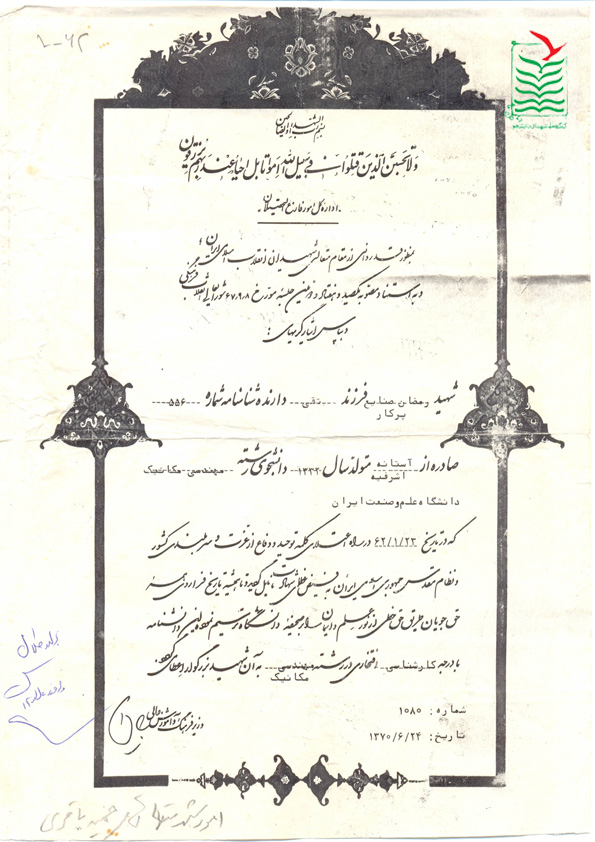 ۶۲-ر
بسم رب الشهداء و الصدیقین
ولا تحسبن الذین قتلوا فی سبیل الله امواتا بل احیاء عند ربهم یرزقون
اداره کل امور فارغ التحصیلان
بمنظور قدردانی از مقام متعالی شهیدان انقلاب اسلامی ایران
و به استناد مصوبه یکصد و هفتاد و دومین جلسه مورخ ۶۷،۹،۸ شورایعالی انقلاب فرهنگی
و بپاس ایثارگریهای:
شهید رمضان صنایع پرکار فرزند تقی دارنده شناسنامه شماره ۵۵۶
صادره از آستانه اشرفیه متولد سال ۱۳۳۲ دانشجوی رشته مهندسی مکانیک
دانشگاه علم و صنعت ایران
که در تاریخ ۶۲/۱/۲۳ در راه اعتلای کلمه توحید و دفاع از عزت و سربلندی کشور
و نظام مقدس جمهوری اسلامی ایران به فیض عظمای شهادت نایل گردید و تا همیشه تاریخ فرا روی همه
حق جویان طریق حق خطی از نور علم و ایمان بر صحیفه دانشگاه ترسیم نمود، این دانشنامه
با درجه کارشناسی افتخاری در رشته مهندسی مکانیک به آن شهید بزرگوار اعطا می گردد.
شماره: ۱۰۸۵
تاریخ: ۱۳۷۰/۶/۲۴
وزیر فرهنگ و آموزش عالی
امور شهدا